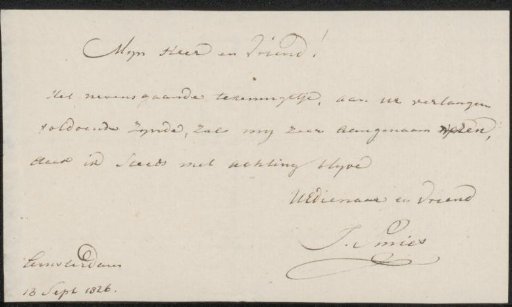 Mijn Heer en Vriend!
Het nevensgaande tekeningetje, aan UE verlangen
voldoende zynde, zal my zeer aangenaam
daar ik steeds met achting blyve
UEDienaar en Vriend
J. Smies
Amsterdam
18 Sept 1826.